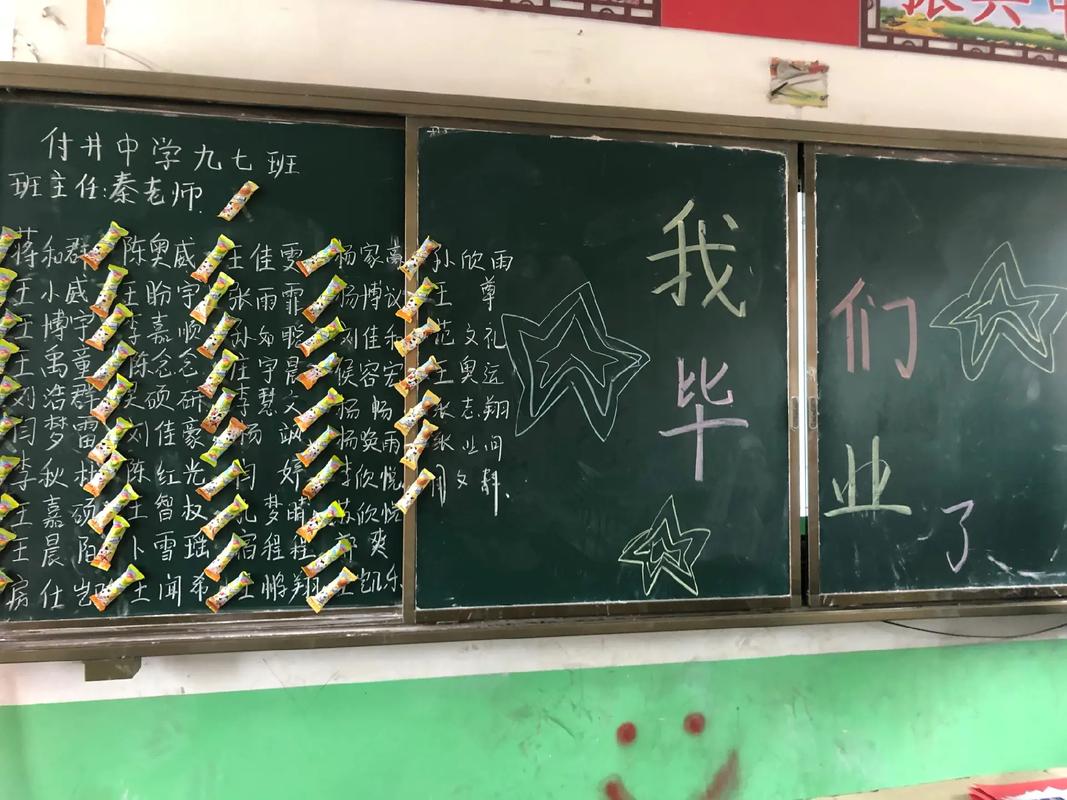 付井中学九七班
班主任:秦老师.
蒋和群 陈奥威 王佳雯 杨家 孙欣雨
王小威 王盼宇 张雨霏 杨博议 王尊
王博宇 李嘉顺 孙 聪 刘佳 范文礼
王禹童 陈念念 庄宇晨 侯容宏 王奥运
刘浩群 硕研 李慧文 杨畅 张志翔
闫梦雷 刘佳豪 杨飒 杨奕雨 张业闯
李秋 陈红光 闫婷 李欣悦 闫文
王嘉硕 王智权 孔梦晴 苏欣悦
王晨陌 卜雪瑶 宿程程 爽
房仕 王闻希 王鹏翔 王凯乐
我
们
毕
业
了
振兴中